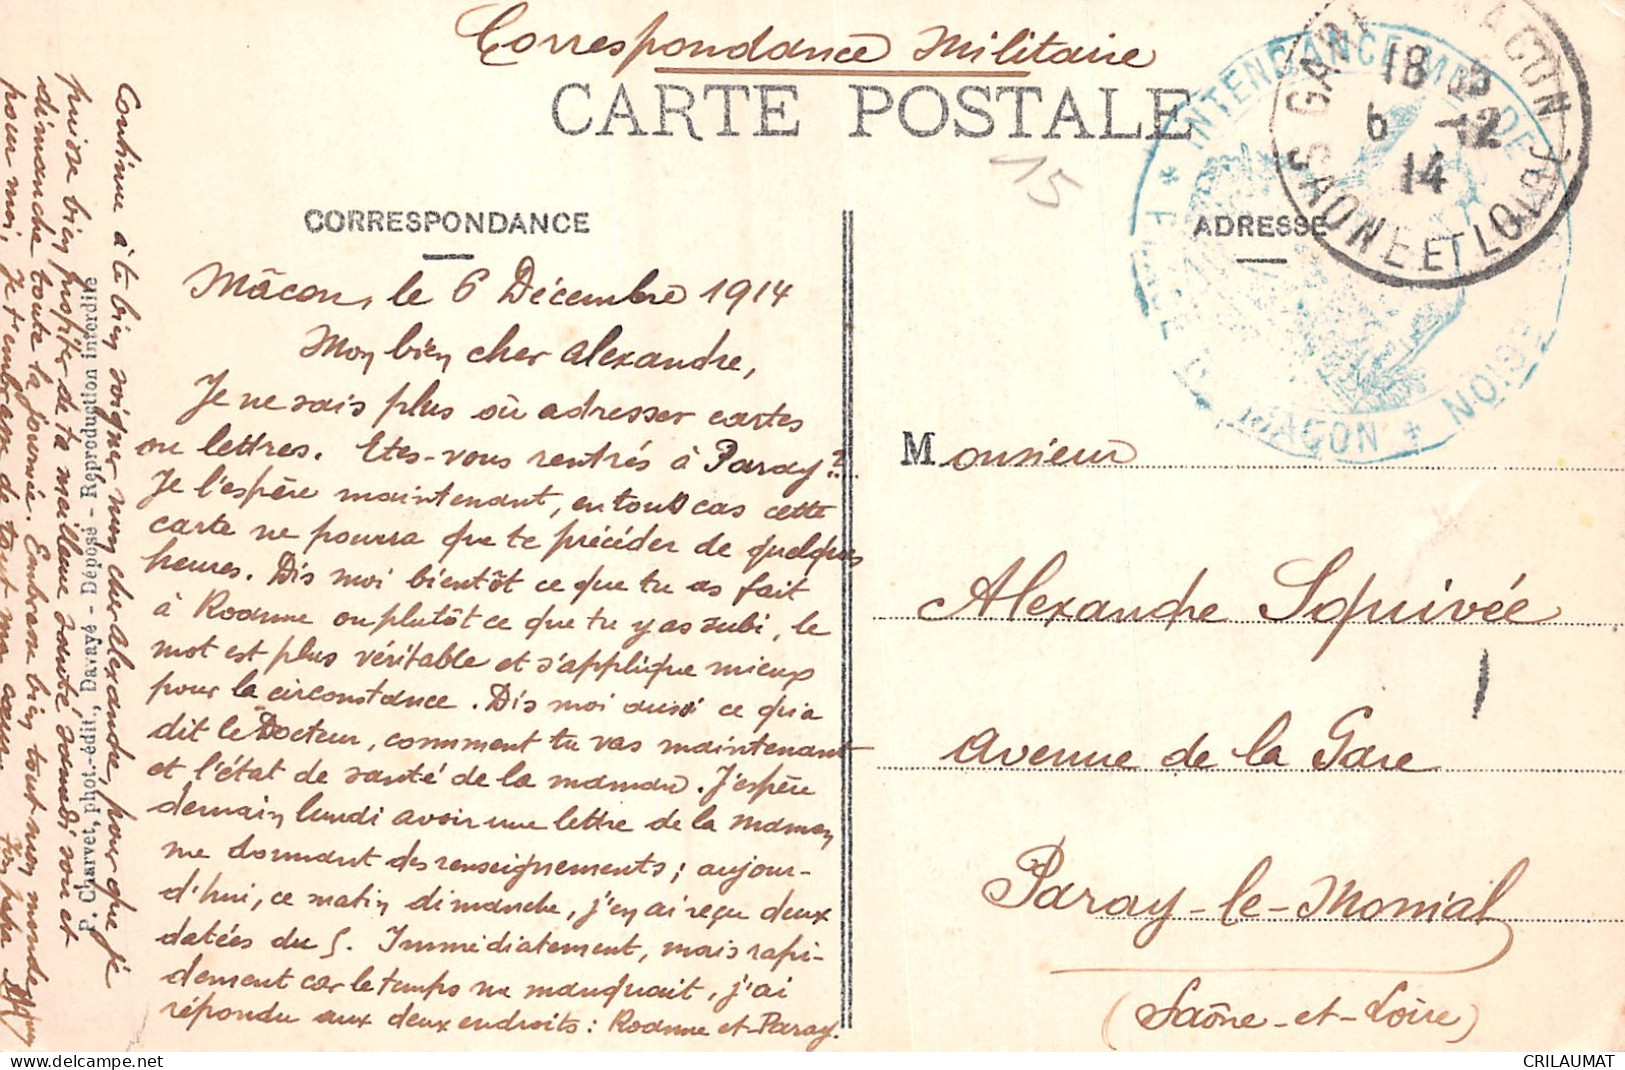 Correspondance Militaire
CARTE POSTALE
15
CORRESPONDANCE
ADRESSE
Mâcon, le 6 Décembre 1914
Mon bien cher Alexandre,
Je ne sais plus où adresser cartes
ou lettres. Etes-vous rentrés à Paray?
Je l'espère maintenant, en tous cas cette
carte ne pourra que te précéder de quelques
heures. Dis moi bientôt ce que tu as fait
à Roanne ou plutôt ce que tu y as subi, le
mot est plus véritable et s'applique mieux
pour la circonstance. Dis moi aussi ce qu'a
dit le Docteur, comment tu vas maintenant
et l'état de santé de la maman. J'espère
demain lundi avoir une lettre de la maman
me donnant des renseignements; aujour-
d'hui, ce matin dimanche, j'en ai reçu deux
datées du 5. Immédiatement, mais rapi-
dement car le temps me manquait, j'ai
répondu aux deux endroits: Roanne et Paray.
Continue à te bien soigner mon cher Alexandre, pour que je
puisse bien profiter de ta meilleure santé, samedi soir et
dimanche toute la journée. Embrasse bien tout mon monde
pour moi, je t'embrasse de tout mon cœur. Ton papa
P. Charvet, phot.-édit., Davayé - Déposé - Reproduction interdite
GARE MACON
18
6 -12
14
SAONE ET LOIRE
* INTENDANCE MILRE DE
MACON * REGION
Monsieur
Alexandre Squivée
Avenue de la Gare
Paray-le-Monial
(Saône-et-Loire)
delcampe.net
CRILAUMAT